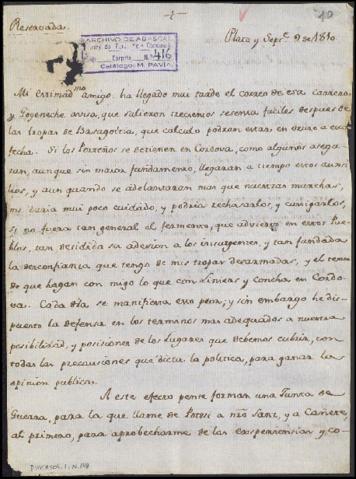 -1-
10
Reservada.
Plata y Sepre 9 de 1810
ARCHIVO DE ABASCAL
Carpeta 416
Catálogo: M. PAVIA
Mi estimadmo amigo, ha llegado muy tarde el correo de esa carrera,
y Goyeneche avisa, que salieron trecientos sesenta fusiles despues de
las tropas de Basagoitia, que calculo podran estar en Oruro a esta
fecha. Si los Porteños se detienen en Cordova, como algunos asegu-
ran, aunque sin mayor fundamento, llegaran a tiempo estos auxi-
lios, y aun quando se adelantaran mas que nuestras marchas,
me daria mui poco cuidado, y podria rechazarlos, y castigarlos,
si no fuera tan general el fermento, que advierto en estos Pue-
blos, tan decidida su adesion a los insurgentes, y tan fundada
la desconfianza que tengo de mis tropas desarmadas, y el temor
de que hagan con migo lo que con Liniers y Concha en Cordo-
va. Cada dia se manifiesta esto peor, y sin embargo he dis-
puesto la defensa en los terminos mas adequados a nuestra
posibilidad, y posiciones de los lugares que debemos cubrir, con
todas las precauciones que dicta la politica, para ganar la
opinion publica.
A este efecto pense formar una Junta de
Guerra, para la que llame de Potosi a nro Sanz, y a Cañete,
al primero, para aprobecharme de las experiencias, y co-
DIVERSOS, 1, N.